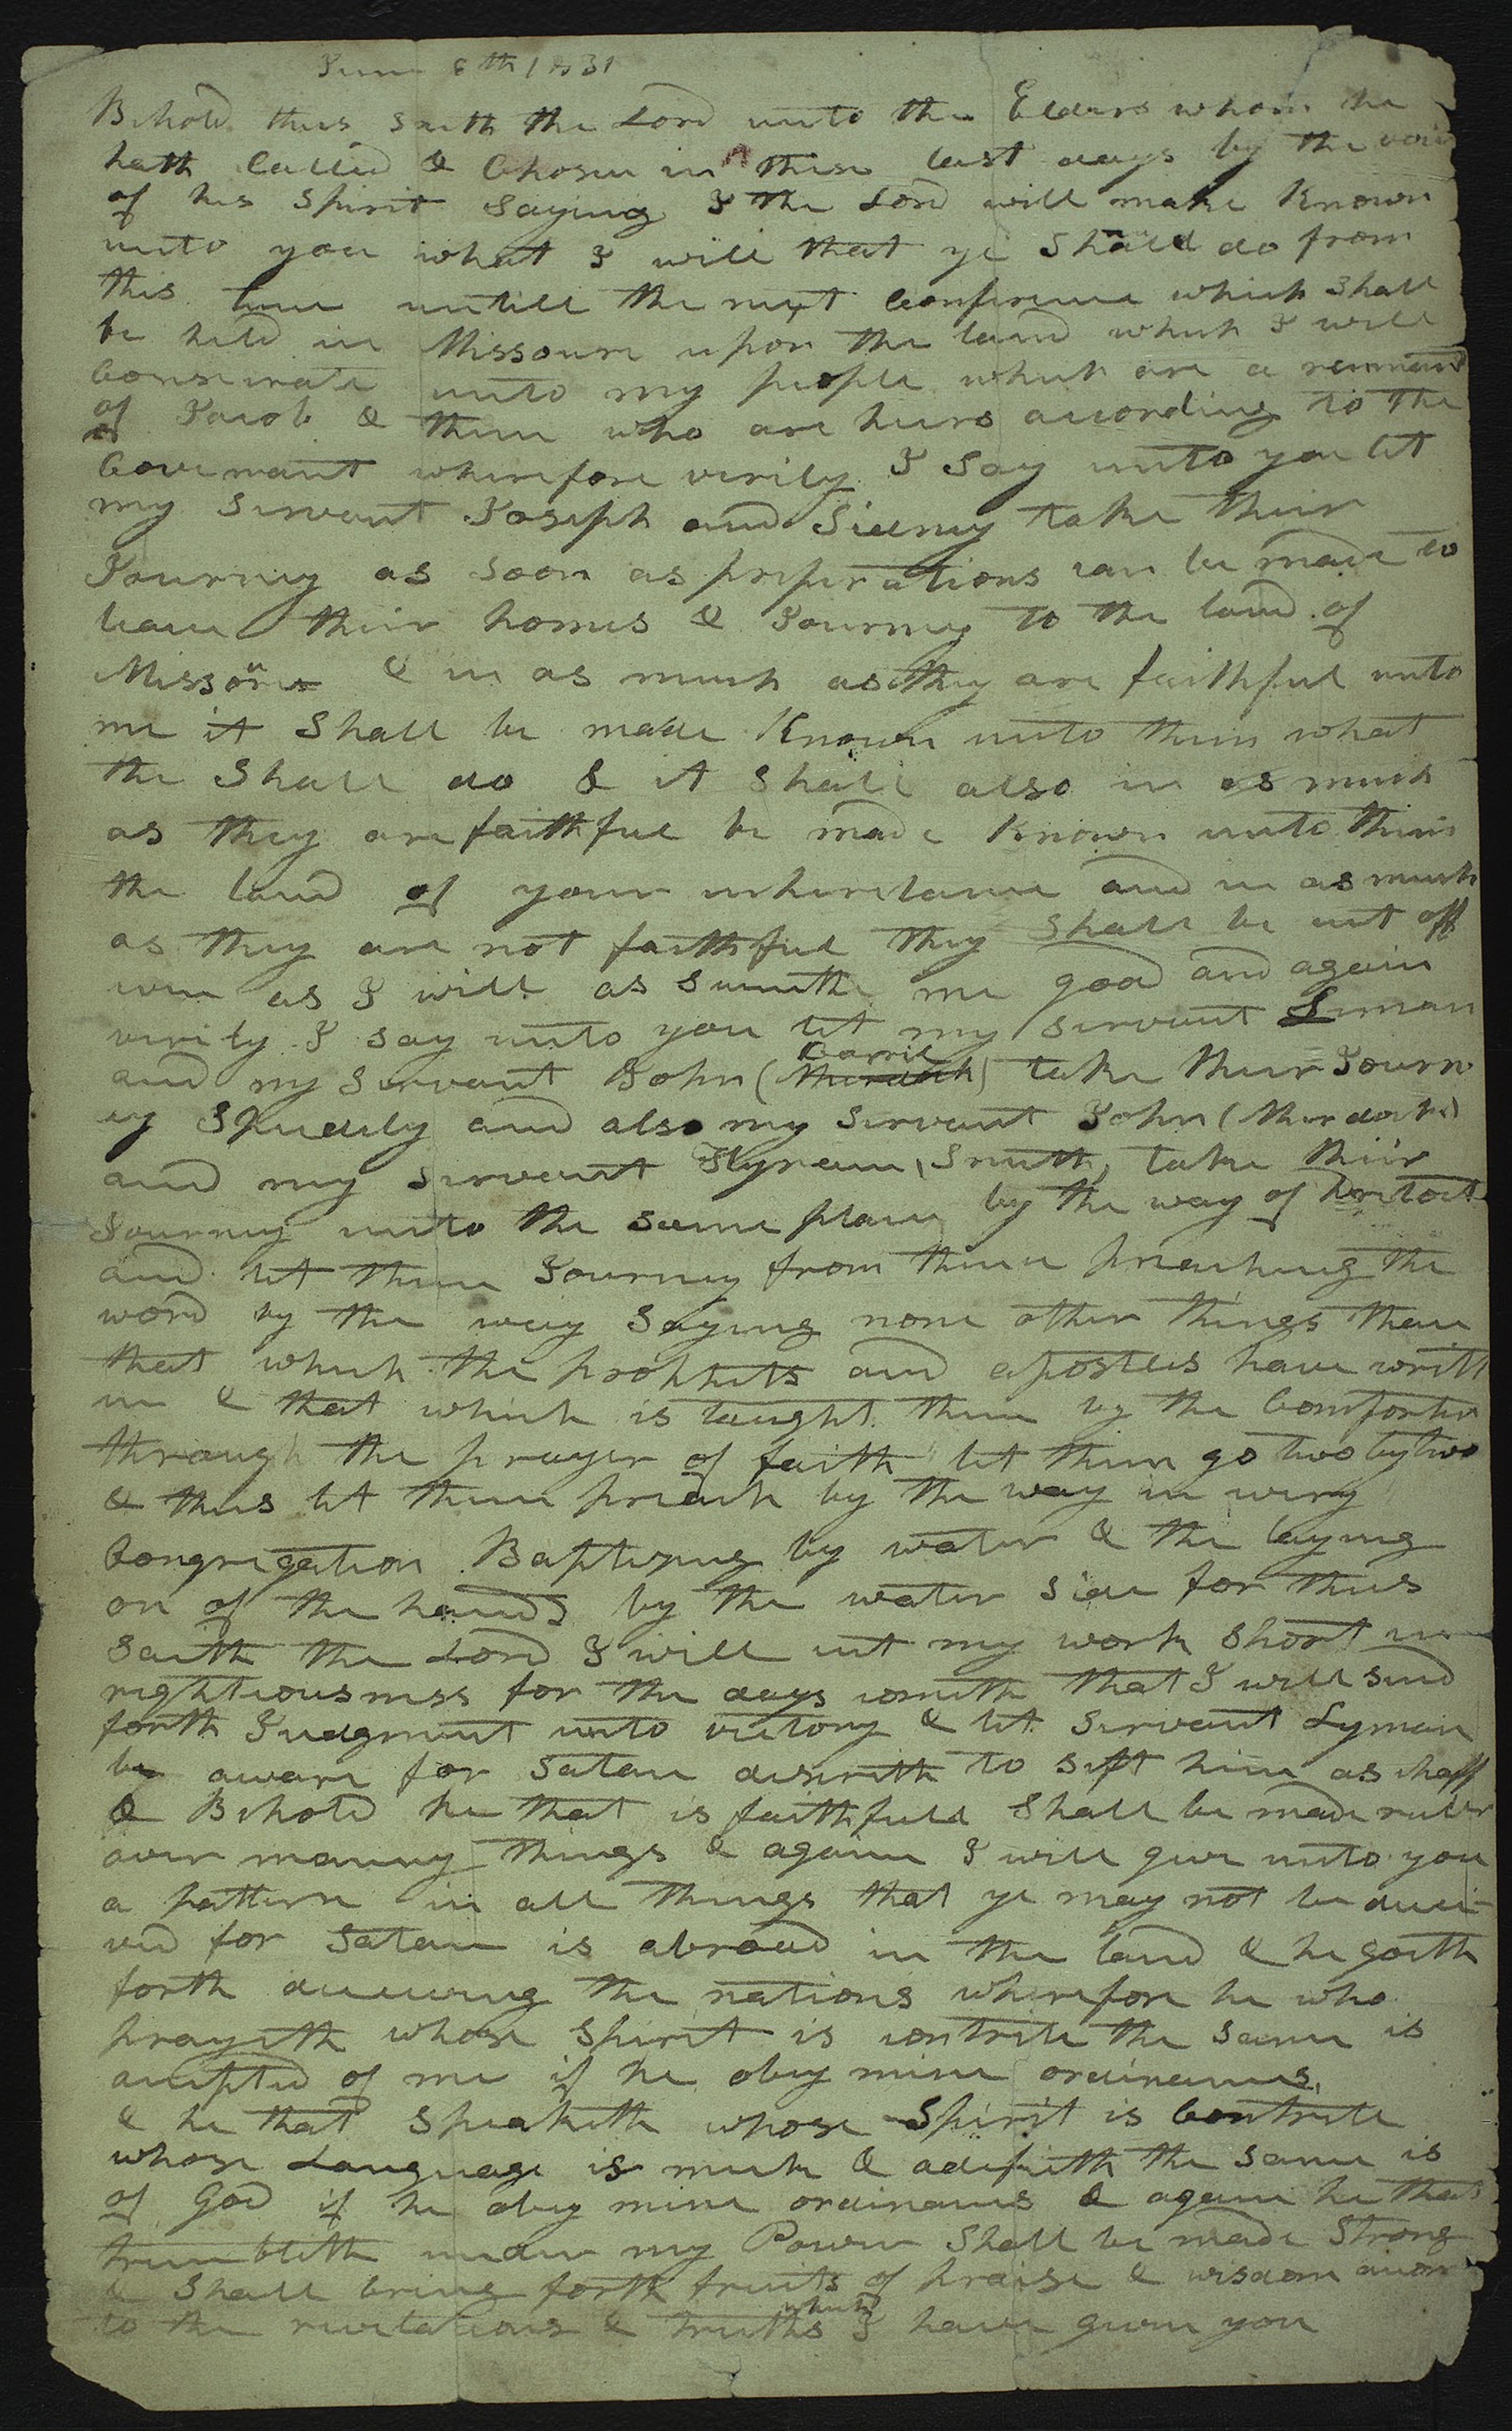 June 6th 1831
Behold thus saith the Lord unto the Elders whom he
hath Called & Chosen in these last days by the voic
of his Spirit Saying I the Lord will make Known
unto you what I will that ye Shall do from
this time untill the next Conference which Shall
be held in Missouri upon the land which I will
Consecrate unto my people which are a remnant
of Jacob & them who are heirs according to the
Covernant wherefore verily I Say unto you let
my Servant Joseph and Sidney take their
Journey as Soon as preperations can be made to
leave their homes & Journey to the land of
Missouri & in as much as they are faithful unto
me it Shall be made Known unto them what
the Shall do & it Shall also in as much
as they are faithful be made Known unto them
the land of your inheretance and in as much
as they are not faithful they Shall be cut off
even as I will as Seemeth me good and again
verily I say unto you let my servant Liman
and my Servant John (Murdock) Carril take their Journ
ey Speedily and also my Servant John (Murdock)
and my servant Hyram Smith take their
Journey unto the same place by the way of Detroit
and let them Journey from thence preaching the
word by the way Saying none other things than
that which the prophets and apostles have writt
en & that which is taught them by the Comforter
through the prayer of faith let them go two by two
& thus let them preach by the way in every
Congregation Baptizing by water & the laying
on of the hands by the water Side for thus
Saith the Lord I will cut my work Short in
rightiousness for the days cometh that I will send
forth Judgment unto victory & let Servant Lyman
be aware for Satan desireth to sift him as chaff
& Behold he that is faithfull Shall be made ruler
over manny things & again I will give unto you
a pattern in all things that ye may not be decei-
ved for Satan is abroad in the land & he goeth
forth deceiving the nations wherefore he who
prayeth whose Spirit is contrite the Same is
accepted of me if he obey mine ordinances
& he that Speaketh whose Spirit is Contrite
whose Language is meek & adifieth the Same is
of God if he obey mine ordinances & again he that
trembleth under my Power Shall be made Strong
& Shall bring forth fruits of praise & wisdom accor
to the revelations & truths which I have given you